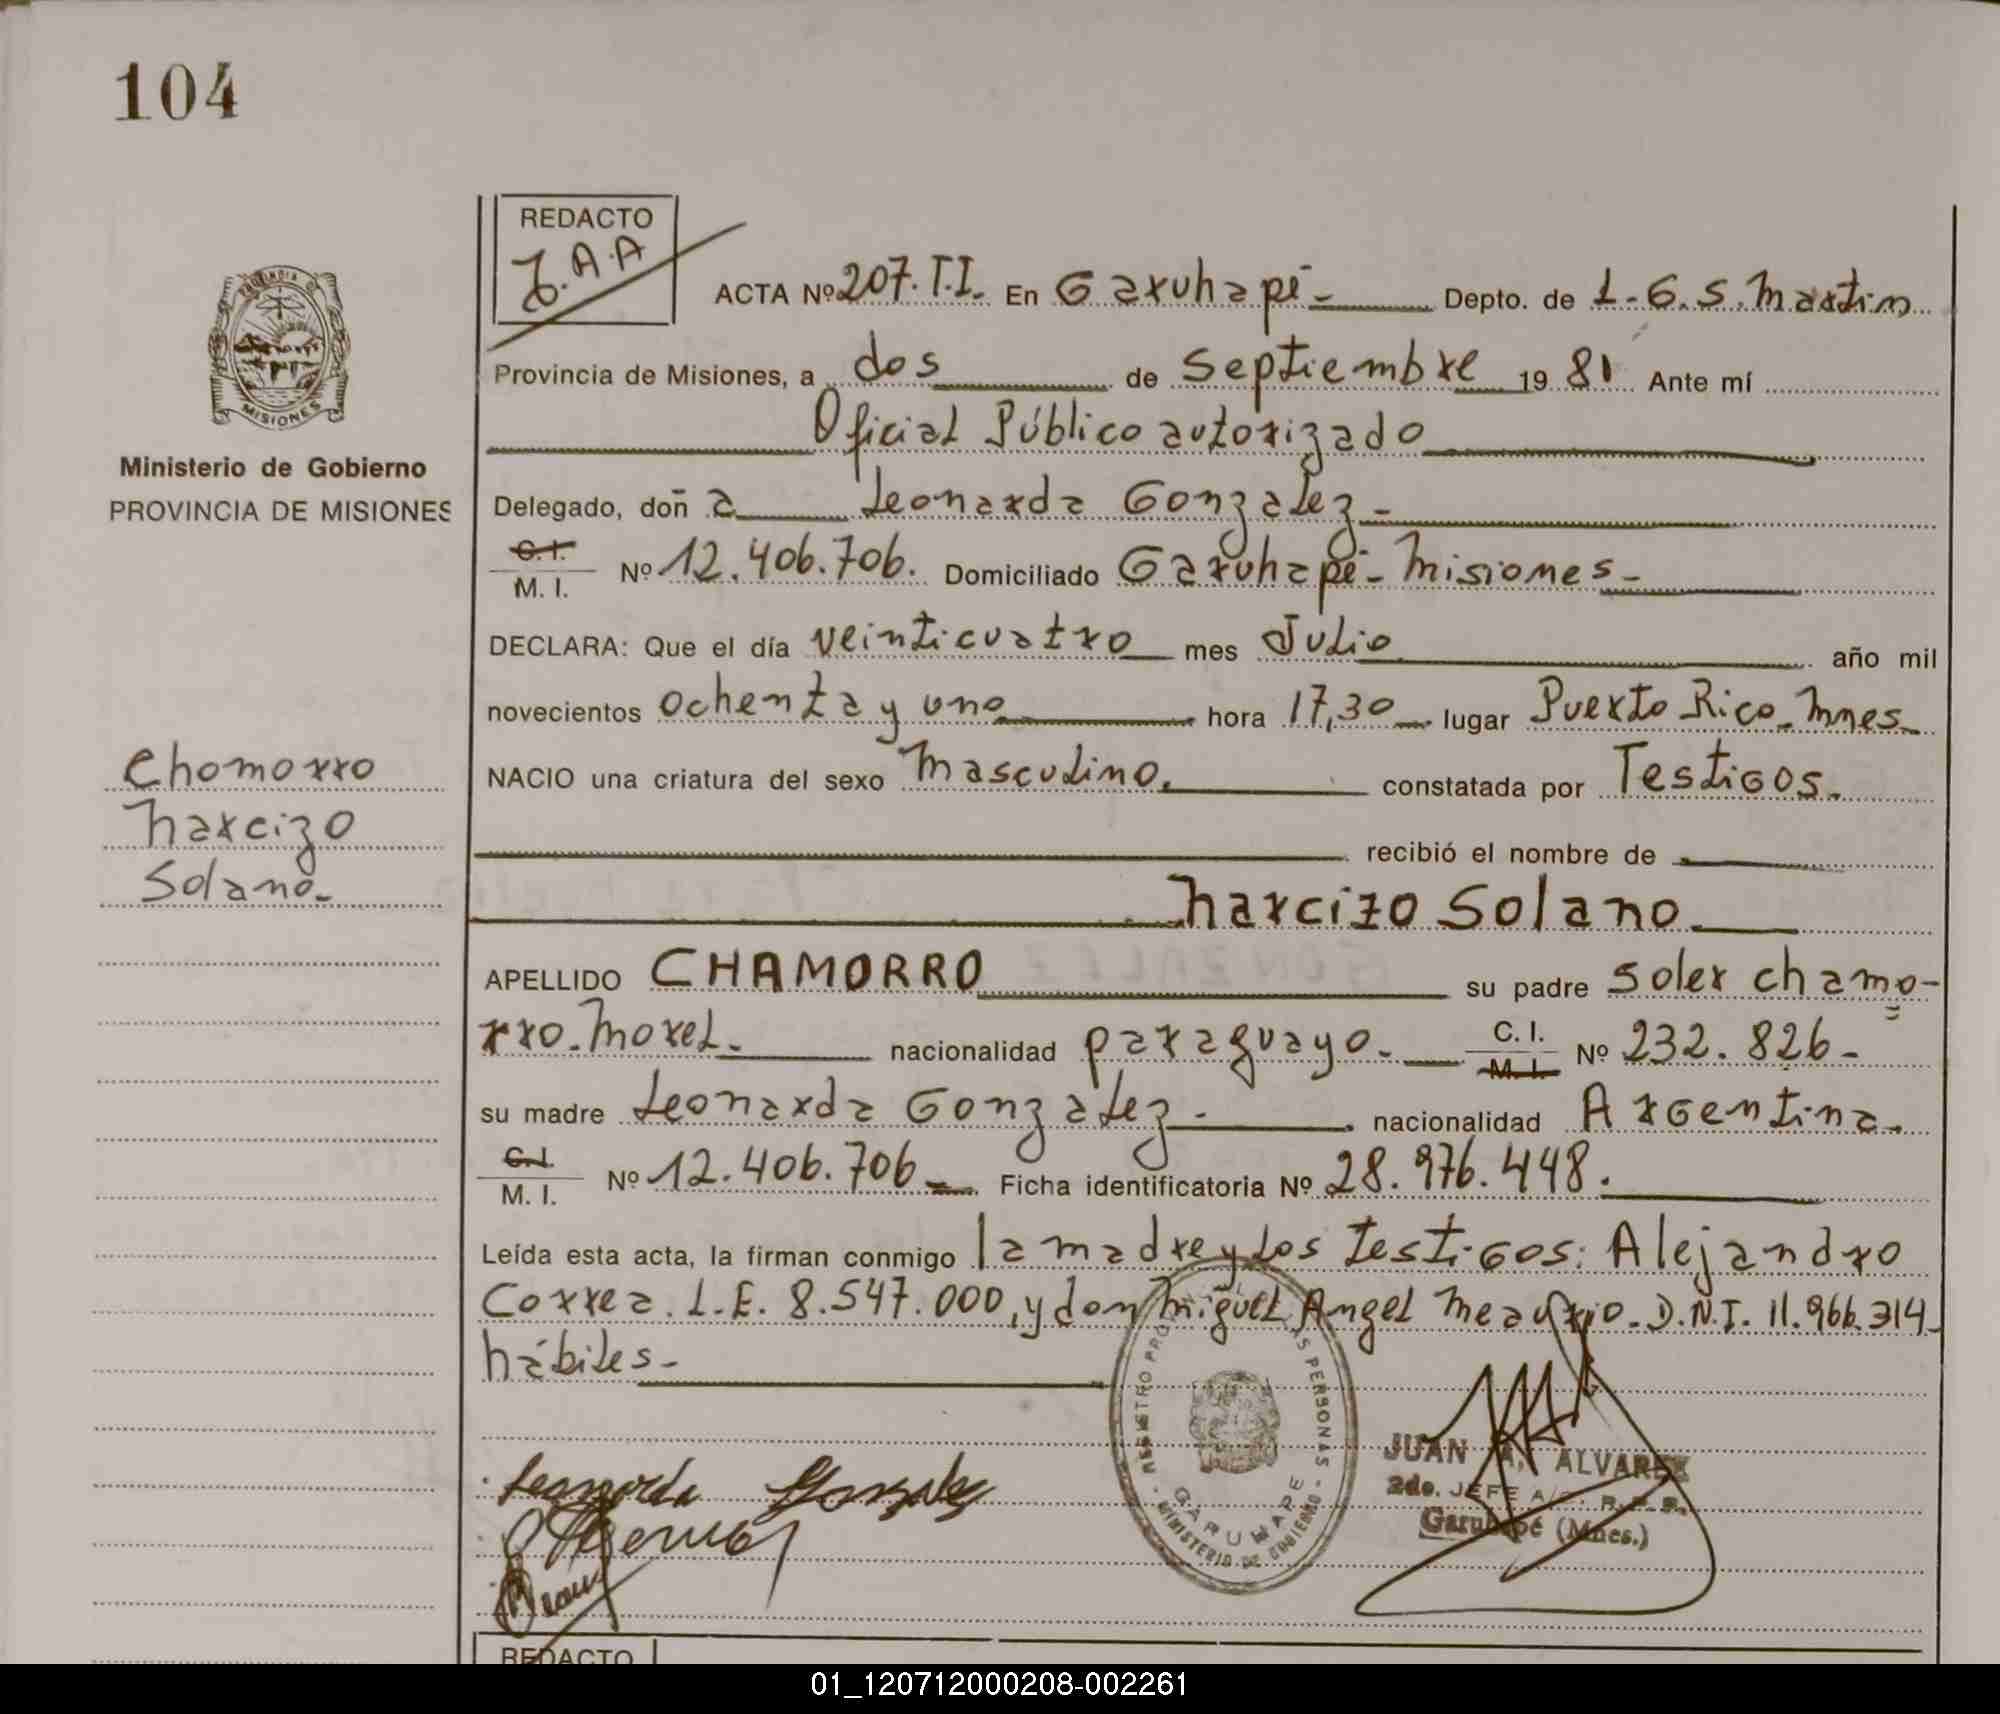 104
REDACTO
J.A.A
ACTA Nº 207.T.I. En Garuhapé- Depto. de L.G.S.Martin
Provincia de Misiones, a dos de Septiembre 19 81 Ante mí
Oficial Público autorizado
Delegado, doñ a Leonarda Gonzalez-
C.I.
M. I. Nº 12.406.706. Domiciliado Garuhapé- Misiones-
DECLARA: Que el día veinticuatro mes Julio año mil
novecientos ochenta y uno hora 17,30 lugar Puerto Rico-Mnes-
NACIO una criatura del sexo Masculino. constatada por Testigos.
recibió el nombre de
Narcizo Solano
APELLIDO CHAMORRO su padre Soler Chamo-
rro-Morel- nacionalidad paraguayo- C. I.
M.I. Nº 232.826-
su madre Leonarda Gonzalez- nacionalidad Argentina.
C.I.
M. I. Nº 12.406.706- Ficha identificatoria Nº 28.976.448.
Leída esta acta, la firman conmigo la madre y los testigos: Alejandro
Correa. L.E. 8.547.000, y don Miguel Angel Meaurio-D.N.I. 11.966.314-
hábiles-
MISIONES
Ministerio de Gobierno
PROVINCIA DE MISIONES
Chomorro
Narcizo
Solano-
Leonarda Gonzalez
PERSONAS
GARUHAPE
MINISTERIO DE GOBIERNO
JUAN A. ALVAREZ
2do. JEFE
Garuhapé (Mnes.)
REDACTO
01_120712000208-002261